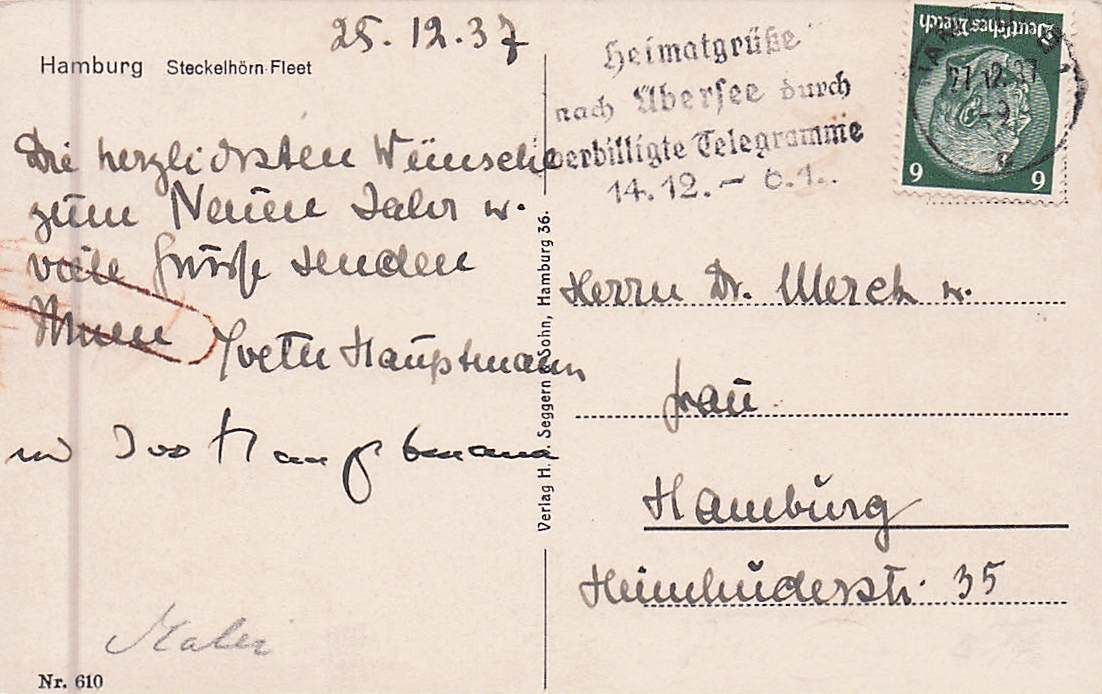 25.12.37
Hamburg Steckelhörn-Fleet
Die herzlichsten Wünsche
zum Neuen Jahr u.
viele Grüsse senden
Ihnen Yvette Hauptmann
und Ivo Hauptmann
Maler
Nr. 610
Verlag H. v. Seggern & Sohn, Hamburg 36.
Heimatgrüße
nach Übersee durch
verbilligte Telegramme
14.12. – 6.1.
Deutsches Reich
27.12.37
6 6
Herrn Dr. Merck u.
Frau
Hamburg
Heimhuderstr. 35